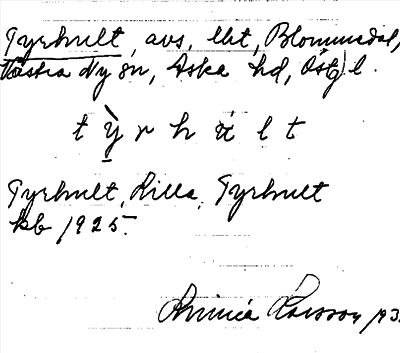 Tyrhult, avs, lht, Blommedal,
Västra Ny sn, Aska hd, Östg l.
t ỳ r h ú l t
Tyrhult, Lilla, Tyrhult
kb 1925.
Larsson 193